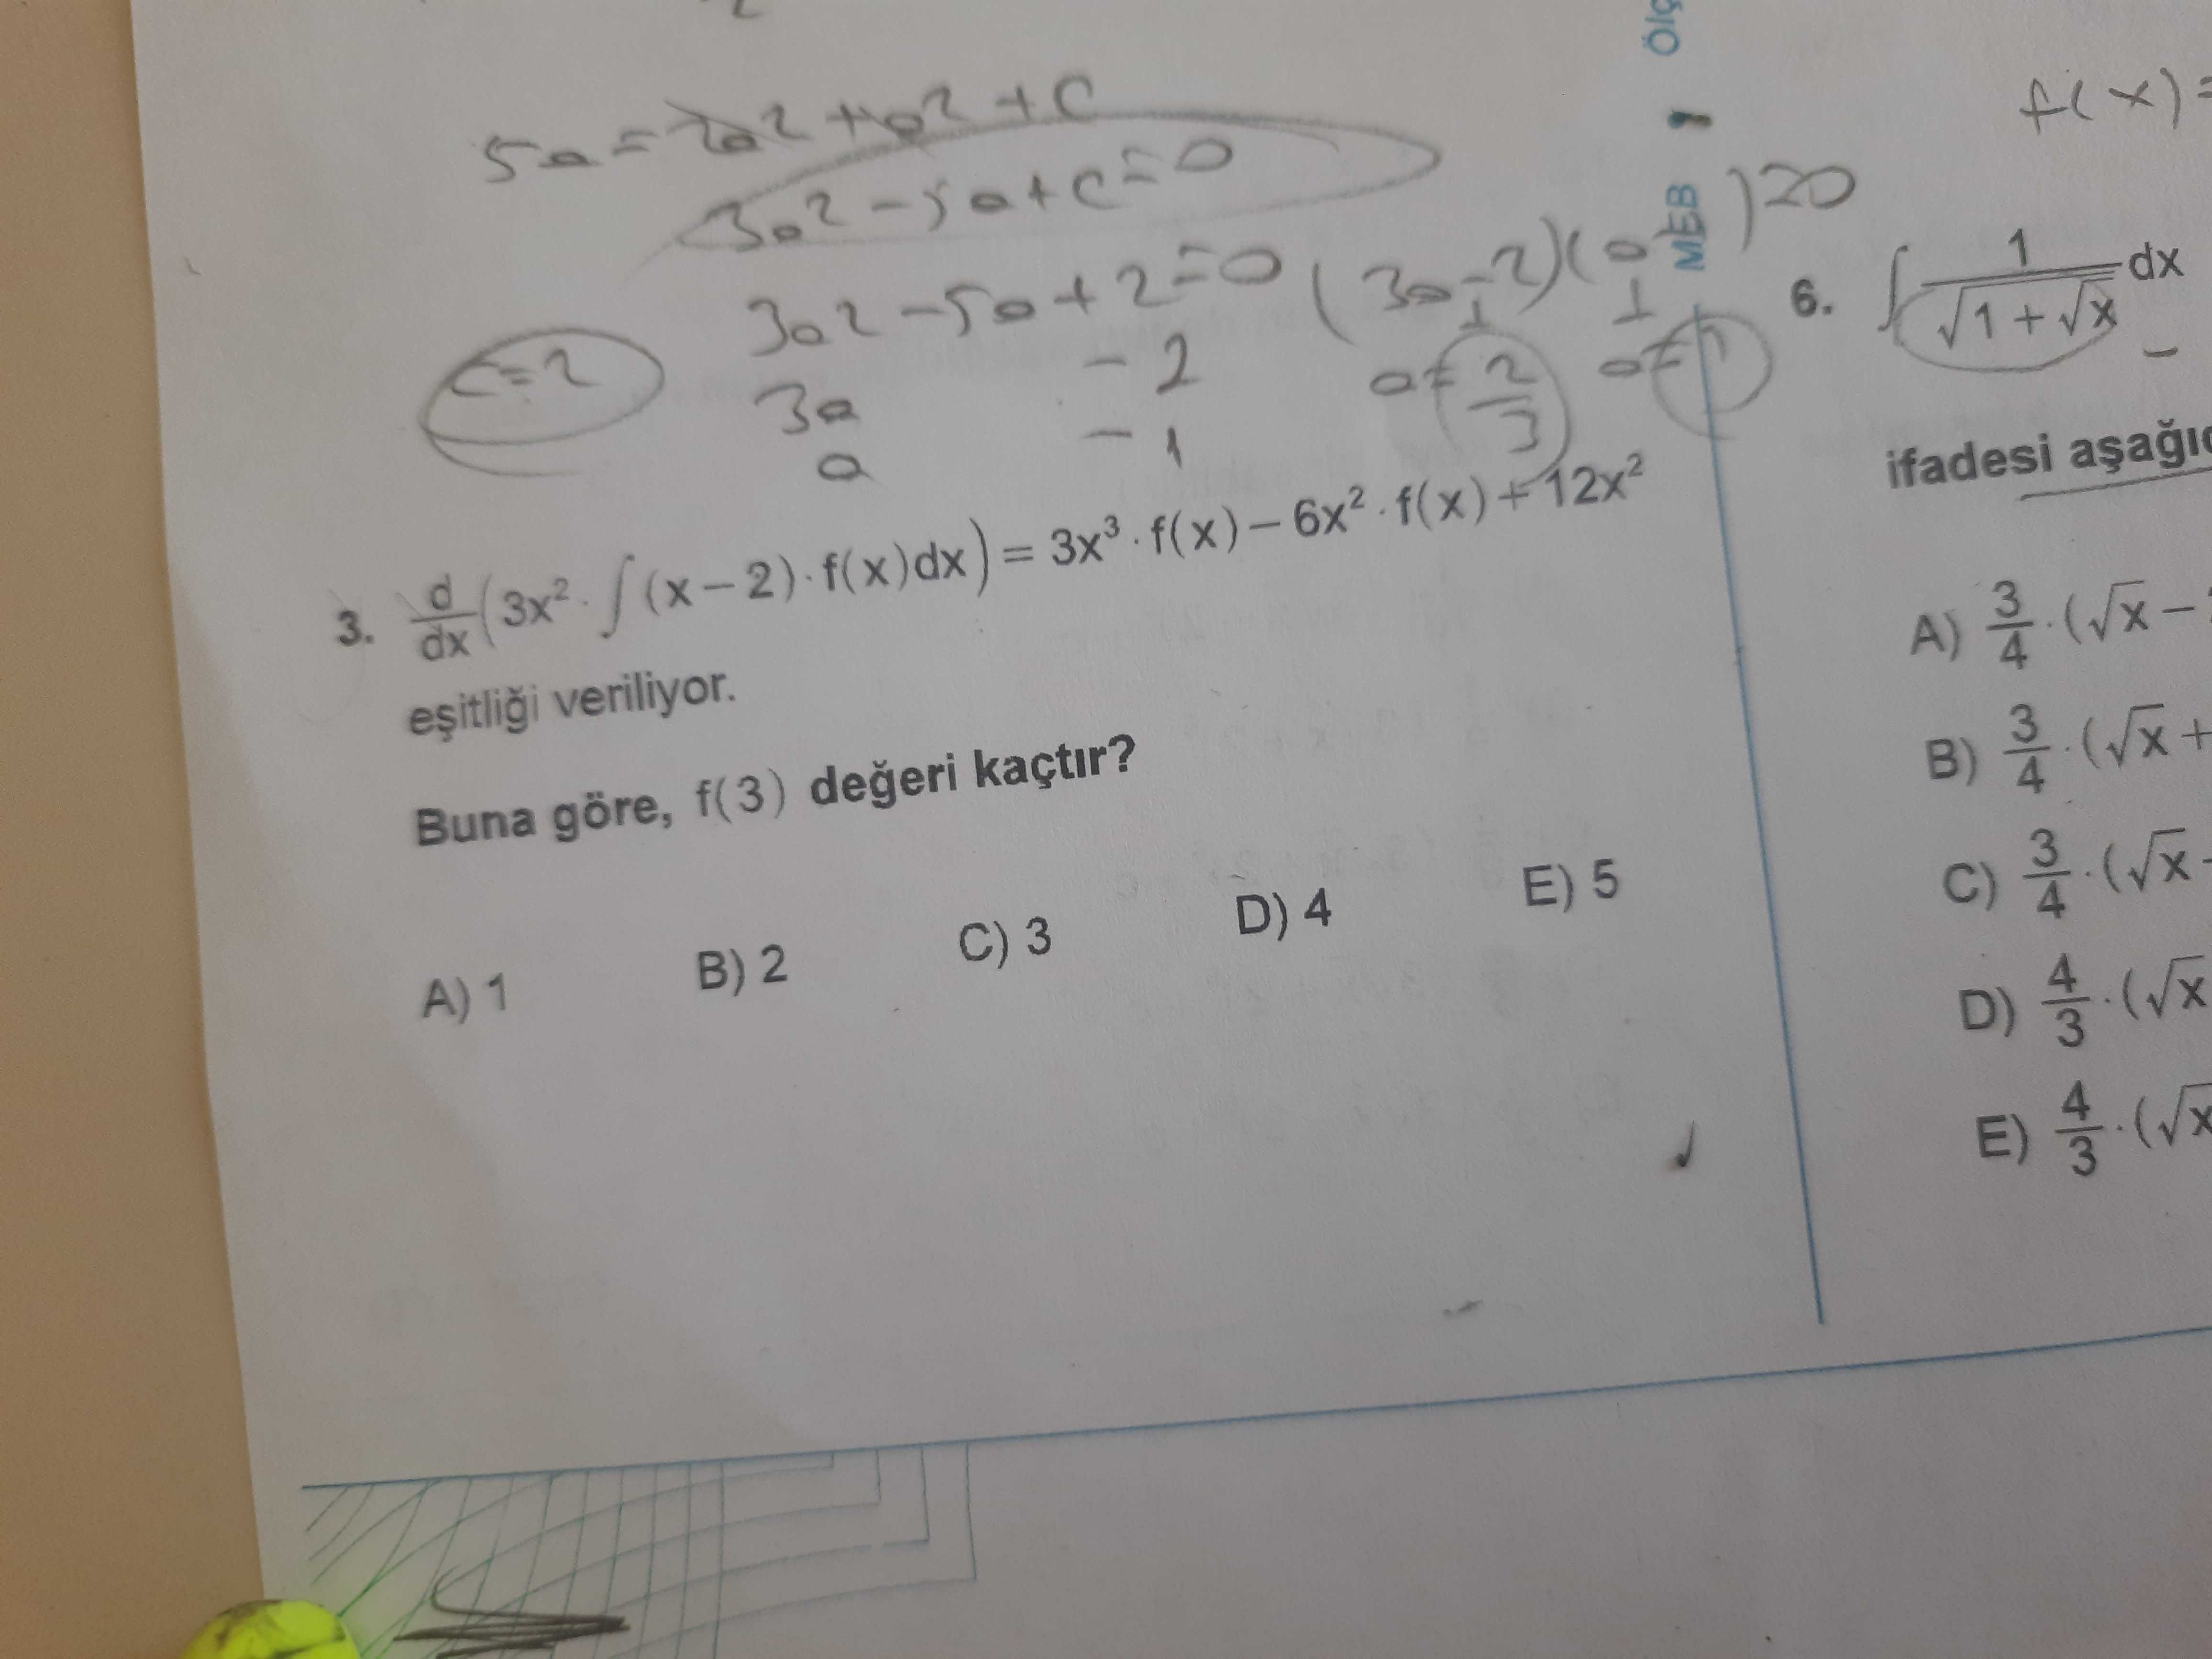 5a = 2a² + a² + c
3a² - 5a + c = 0
3a² - 5a + 2 = 0 (3a - 2)(a
c = 2
3a - 2
a - 1
a = 2/3 a = 1
3. d/dx (3x² · ∫(x − 2) · f(x)dx) = 3x³ · f(x) − 6x² · f(x) + 12x²
eşitliği veriliyor.
Buna göre, f(3) değeri kaçtır?
A) 1 B) 2 C) 3 D) 4 E) 5
MEB
f(x) =
)20
6. ∫ 1/√(1 + √x) dx
ifadesi
A) 3/4 · (√x −
B) 3/4 · (√x +
C) 3/4 · (√x -
D) 4/3 · (√x
E) 4/3 · (√x